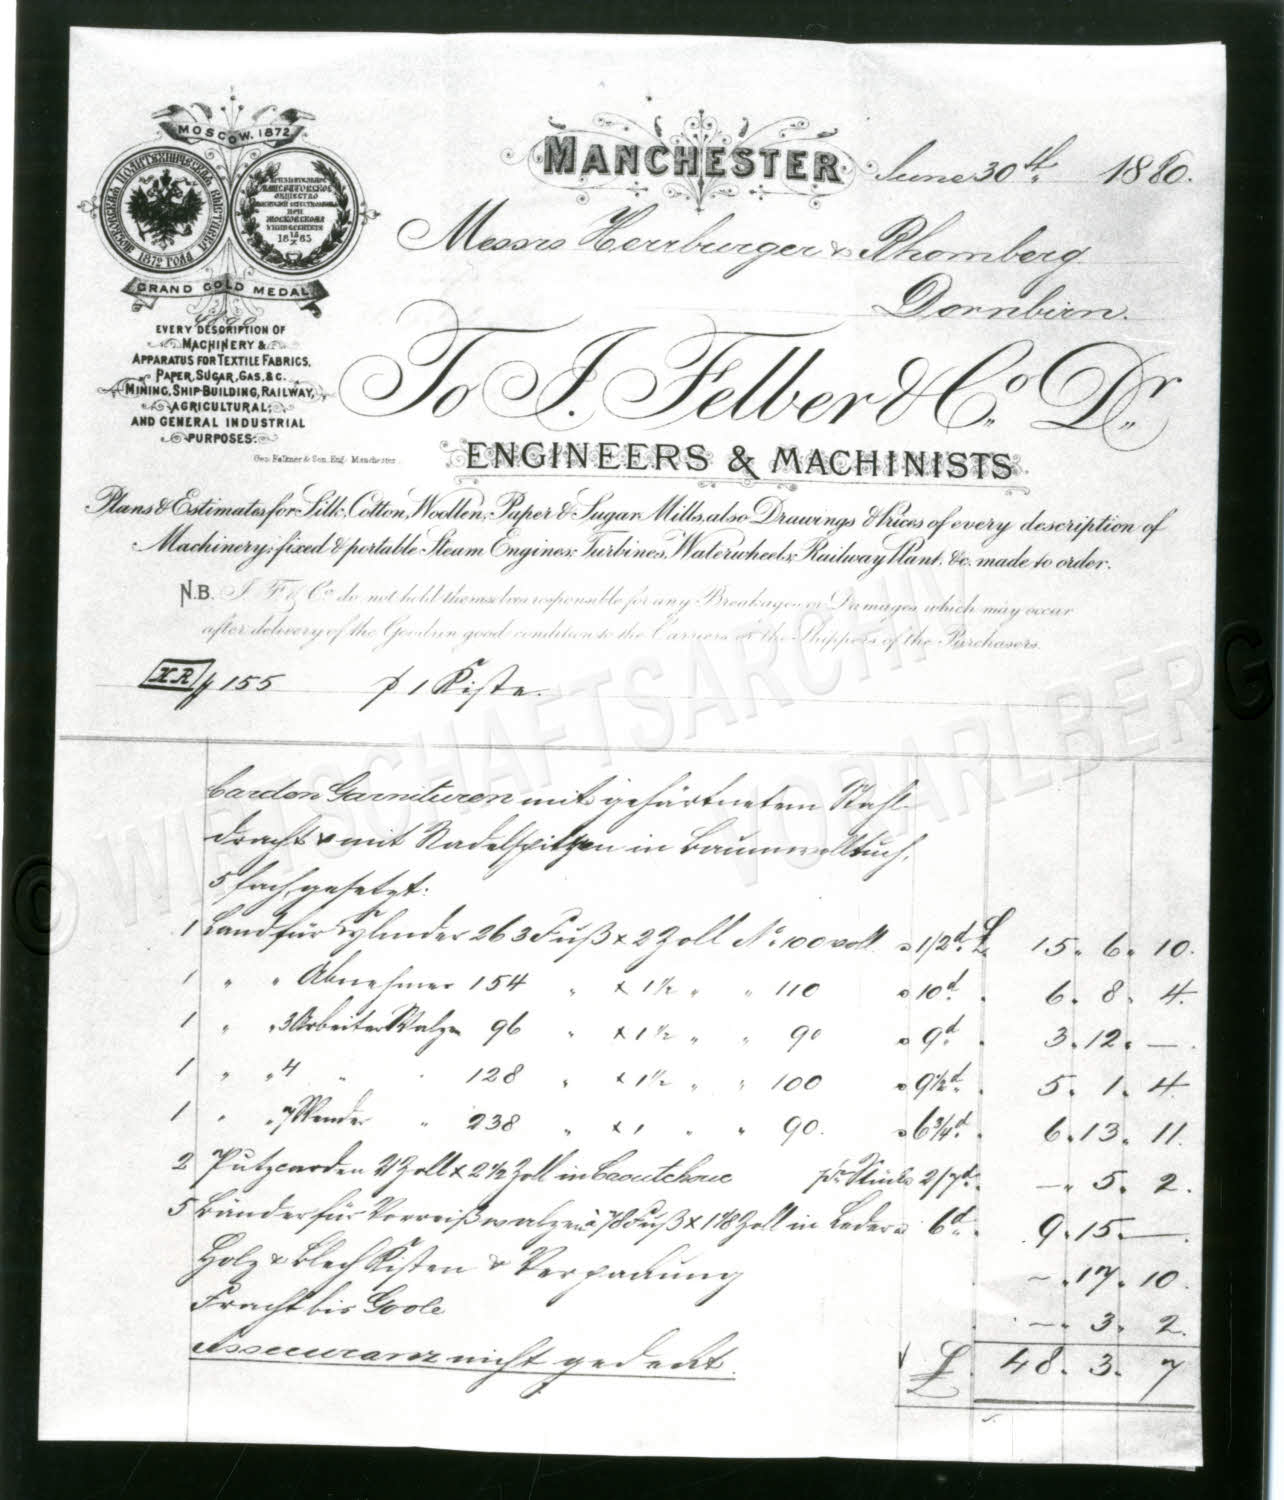 MOSCOW, 1872
МОСКОВСКАЯ ПОЛИТЕХНИЧЕСКАЯ ВЫСТАВКА
1872 ГОДА
ИМПЕРАТОРСКОЕ
ОБЩЕСТВО
ПРИ
МОСКОВСКОМЪ
УНИВЕРСИТЕТѢ
GRAND GOLD MEDAL.
EVERY DESCRIPTION OF
MACHINERY &
APPARATUS FOR TEXTILE FABRICS,
PAPER, SUGAR, GAS, &C.
MINING, SHIP-BUILDING, RAILWAY,
AGRICULTURAL,
AND GENERAL INDUSTRIAL
PURPOSES.
Geo. Falkner & Son, Eng. Manchester
MANCHESTER June 30th 1880.
Messrs Herrburger & Rhomberg
Dornbirn.
To J. Felber & Co. Dr.
ENGINEERS & MACHINISTS
Plans & Estimates for Silk, Cotton, Woollen, Paper & Sugar Mills, also Drawings & Prices of every description of
Machinery; fixed & portable Steam Engines, Turbines, Waterwheels, Railway Plant, &c. made to order.
N.B. J. F. & Co. do not hold themselves responsible for any Breakages or Damages which may occur
after delivery of the Goods in good condition to the Carriers or the Shippers of the Purchasers.
H.R 155 1 Kiste.
Carden Garnituren mit gehärtnetem Stahl-
draht & mit Nadelspitzen in Baumwolltuch,
5 fach gesetzt:
1 Band für Cylinder 263 Fuß x 2 Zoll No. 100 voll 1/2d £ 15. 6. 10.
1 " " Abnehmer 154 " x 1½ " " 110 10d. 6. 8. 4.
1 " " 3 Arbeiter Walzen 96 " x 1½ " " 90 9d. 3. 12. —.
1 " " 4 " 128 " x 1½ " " 100 9½d. 5. 1. 4.
1 " " 7 Wender " 238 " x 1 " " 90. 6¾d. 6. 13. 11.
2 Putzcarden 21 Zoll x 2½ Zoll in Caoutchouc pr. Stück 2/7d. —. 5. 2.
5 Bänder für Vorreißwalzen à 78 Fuß x 1 1/8 Zoll in Leder 6d. 9. 15. —.
Holz & Blech Kisten & Verpackung —. 17. 10.
Fracht bis Goole —. 3. 2.
Assecuranz nicht gedeckt. £ 48. 3. 7
© WIRTSCHAFTSARCHIV
VORARLBERG